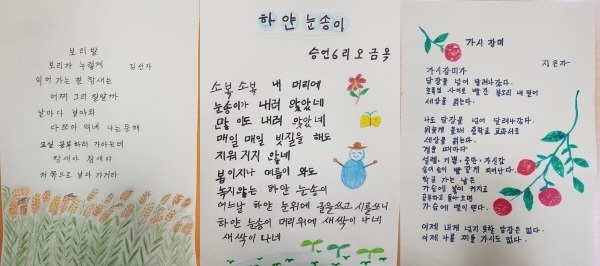 보리밭
김선자
보리가 누렇게
익어 가는걸 참새는
어찌 그리 잘알까
날마다 날아와
다쪼아 먹네 나는 못해
교실 공부하러 가야는데
참새야 참새야
저쪽으로 날아 가거라
하얀 눈송이
승언6리 오금옥
소복소복 내 머리에
눈송이가 내려 앉았네
많이도 내려 앉았네
매일 매일 빗질을 해도
지워 거지 않네
봄이지나 여름이 와도
녹지않는 하얀 눈송이
어느날 하얀 눈위에 글을쓰고 시를쓰니
하얀 눈송이 머리위에 새싹이 나네
새싹이 나네
가시 장미
지은자
가시장미가
담장을 넘어 달려나갔다.
초록잎 사이로 빨간 봉오리 내 밀어
세상을 읽는다.
나도 담장을 넘어 달려나갔다.
중학교 교과서로
세상을 읽는다.
때마다
설렘, 기쁨, 자신감
송이 송이 빨갛게 피어난다.
학교 가는 날은
가슴에 불이 켜지고
공부하고 돌아오면
가슴에 별이 뜬다.
이제 내게 넘지 못할 담장은 없다.
이제 나를 찌를 가시도 없다.